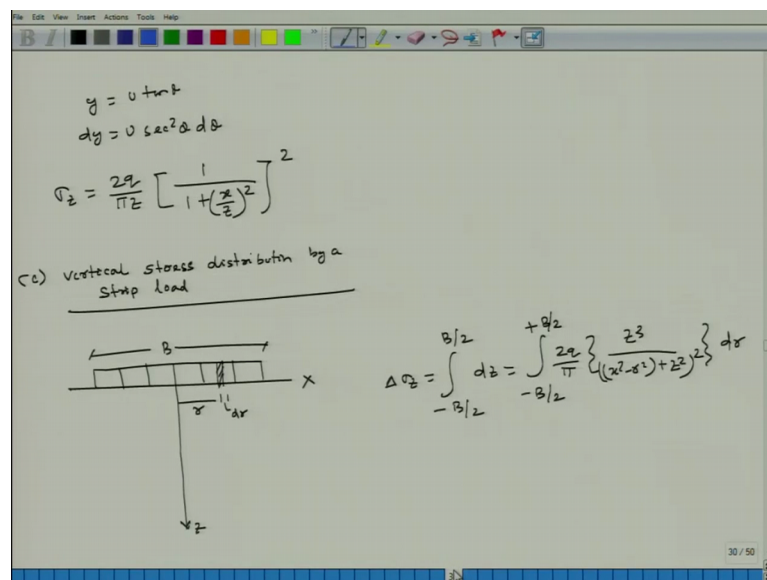 File Edit View Insert Actions Tools Help
B I
y = u tanθ
dy = u sec²θ dθ
σz = 2q/πz [1/(1+(x/z)²)]²
(c) Vertical stress distributin by a
strip load
B
X
r
dr
z
Δσz = ∫_{-B/2}^{B/2} dz = ∫_{-B/2}^{+B/2} 2q/π {z³/((x²-r²)+z²)²} dr
30 / 50